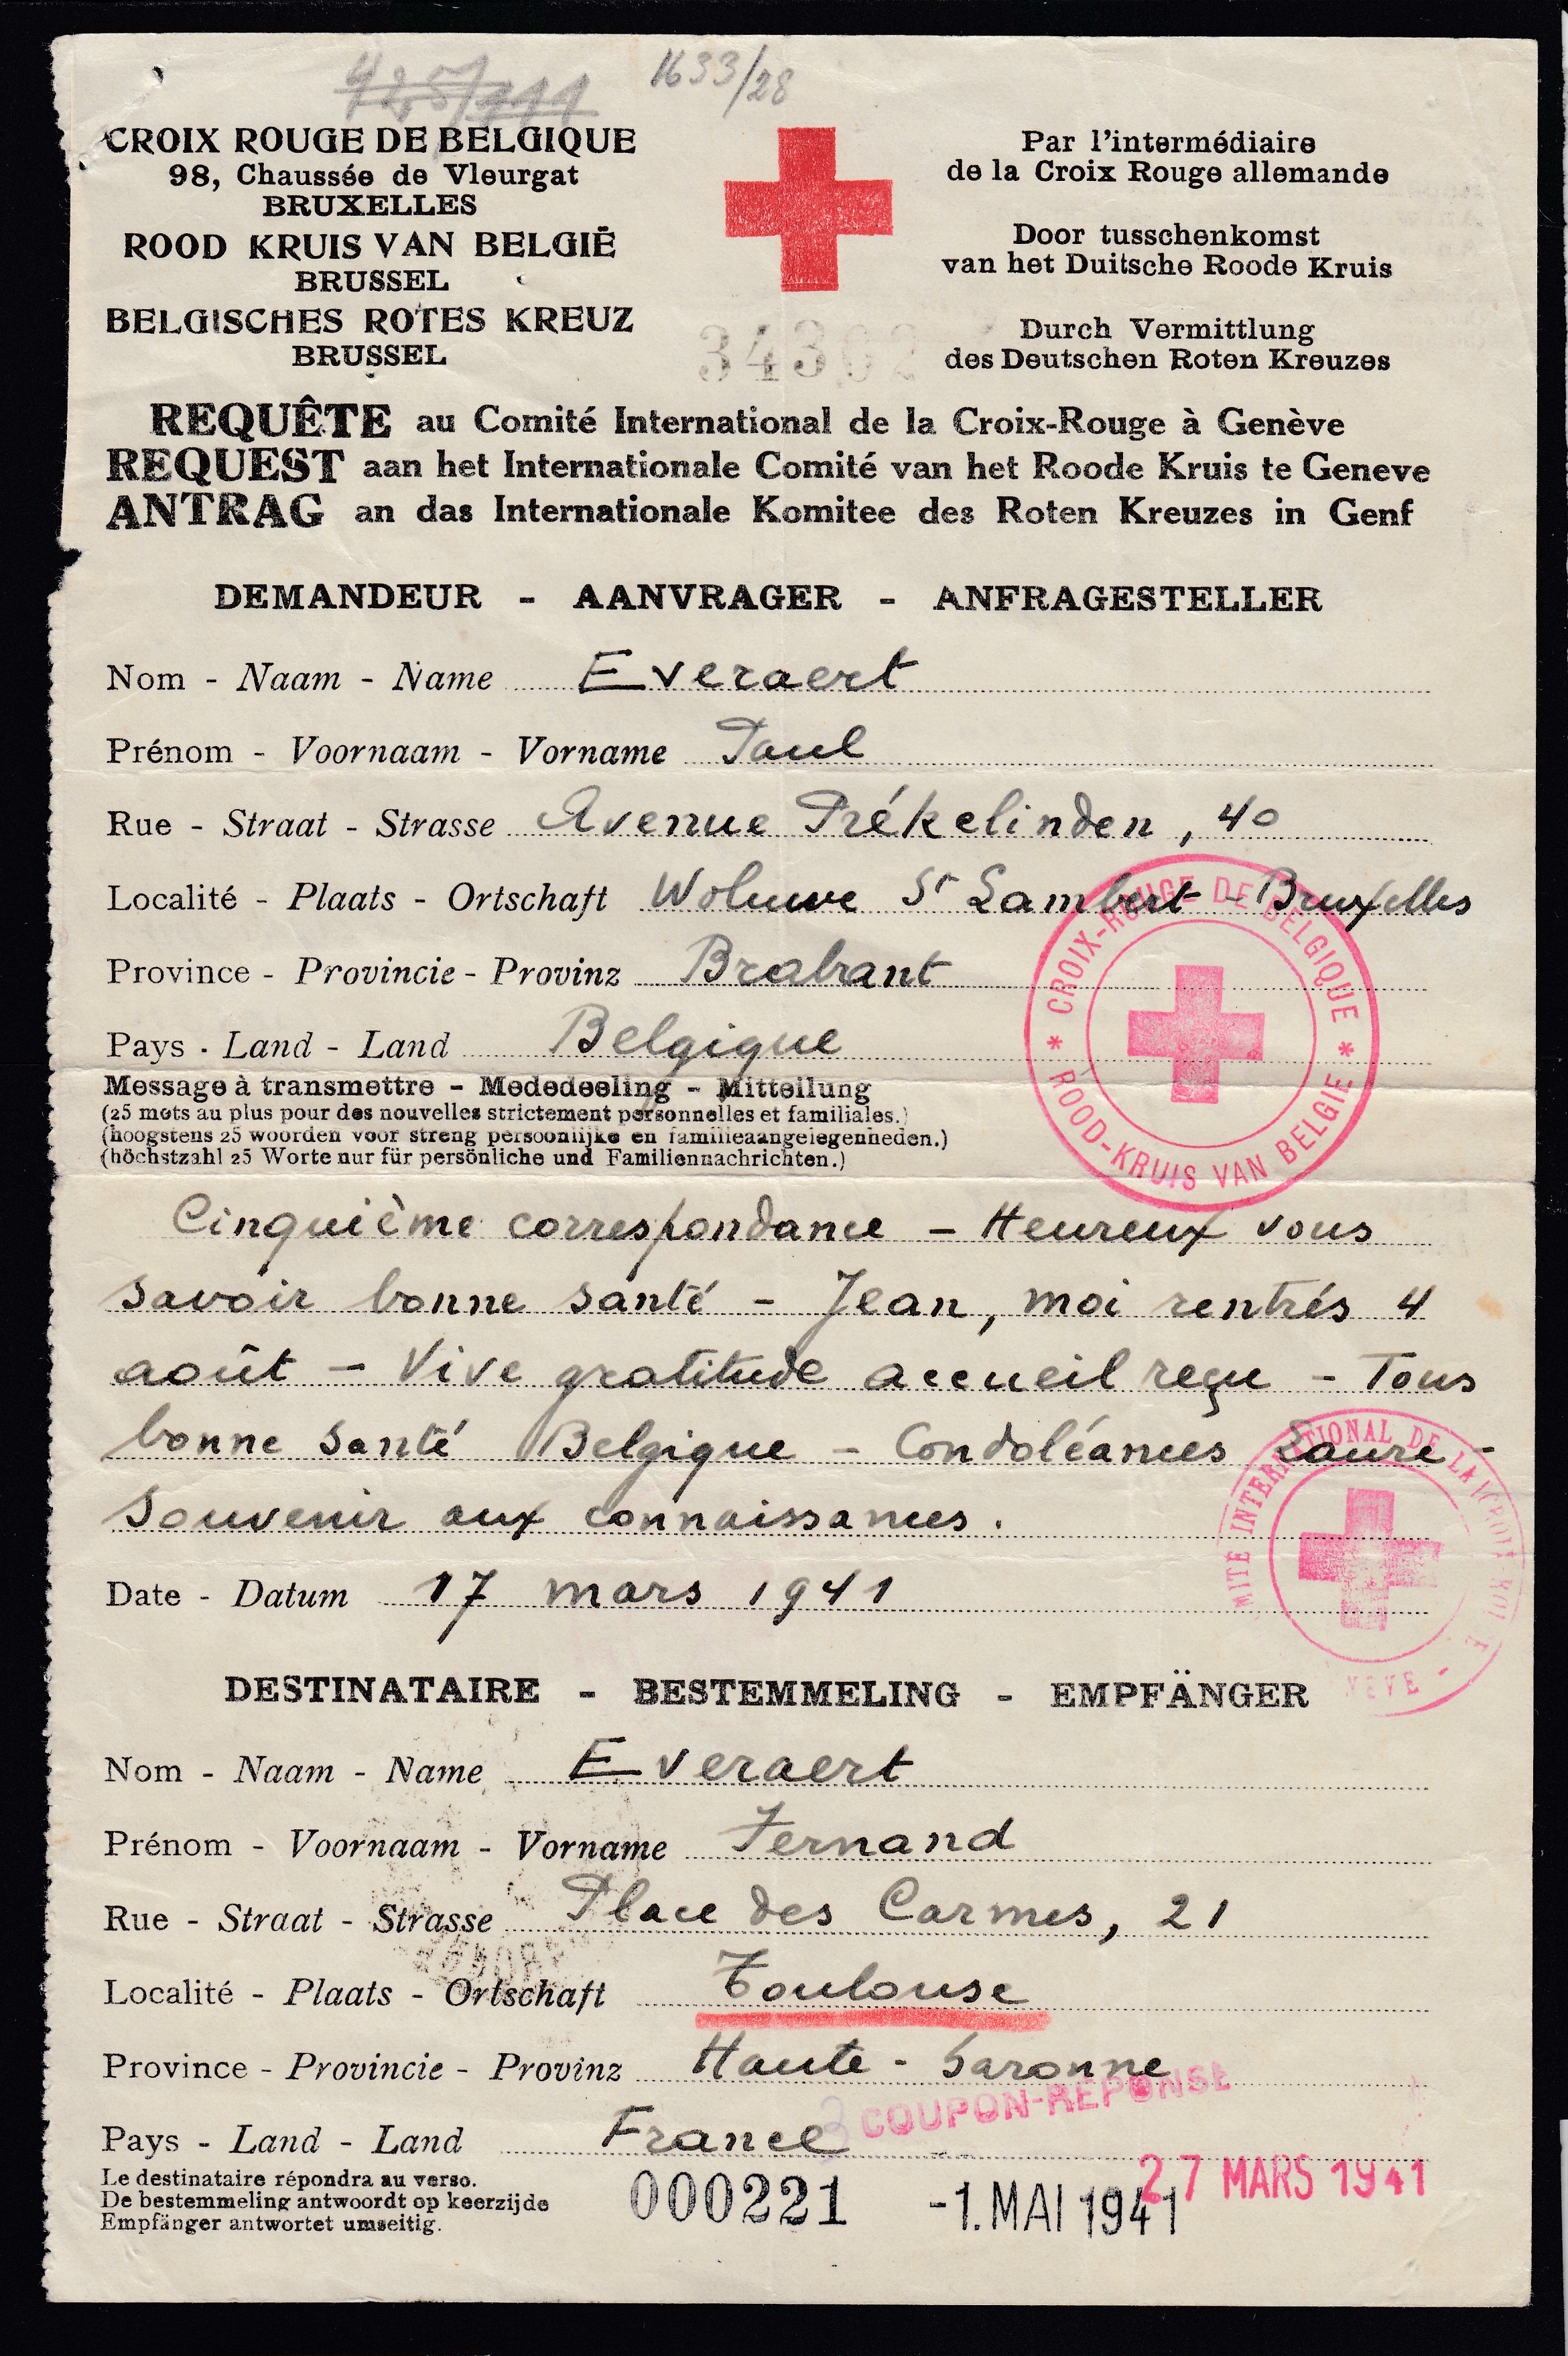 1633/28
CROIX ROUGE DE BELGIQUE
98, Chaussée de Vleurgat
BRUXELLES
ROOD KRUIS VAN BELGIË
BRUSSEL
BELGISCHES ROTES KREUZ
BRUSSEL
Par l'intermédiaire
de la Croix Rouge allemande
Door tusschenkomst
van het Duitsche Roode Kruis
Durch Vermittlung
des Deutschen Roten Kreuzes
34302
REQUÊTE au Comité International de la Croix-Rouge à Genève
REQUEST aan het Internationale Comité van het Roode Kruis te Geneve
ANTRAG an das Internationale Komitee des Roten Kreuzes in Genf
DEMANDEUR - AANVRAGER - ANFRAGESTELLER
Nom - Naam - Name Everaert
Prénom - Voornaam - Vorname Paul
Rue - Straat - Strasse Avenue Prékelinden, 40
Localité - Plaats - Ortschaft Woluwe St Lambert - Bruxelles
Province - Provincie - Provinz Brabant
Pays - Land - Land Belgique
CROIX-ROUGE DE BELGIQUE
* ROOD-KRUIS VAN BELGIE *
Message à transmettre - Mededeeling - Mitteilung
(25 mots au plus pour des nouvelles strictement personnelles et familiales.)
(hoogstens 25 woorden voor streng persoonlijke en familieaangelegenheden.)
(höchstzahl 25 Worte nur für persönliche und Familiennachrichten.)
Cinquième correspondance - Heureux vous
savoir bonne santé - Jean, moi rentrés 4
août - Vive gratitude accueil reçu - Tous
bonne santé Belgique - Condoléances Laure -
Souvenir aux connaissances.
MITE INTERNATIONAL DE LA CROIX ROUGE
NEVE -
Date - Datum 17 mars 1941
DESTINATAIRE - BESTEMMELING - EMPFÄNGER
Nom - Naam - Name Everaert
Prénom - Voornaam - Vorname Fernand
Rue - Straat - Strasse Place des Carmes, 21
Localité - Plaats - Ortschaft Toulouse
Province - Provincie - Provinz Haute-Garonne
COUPON-RÉPONSE
Pays - Land - Land France
Le destinataire répondra au verso.
De bestemmeling antwoordt op keerzijde
Empfänger antwortet umseitig.
000221
-1. MAI 1941
27 MARS 1941